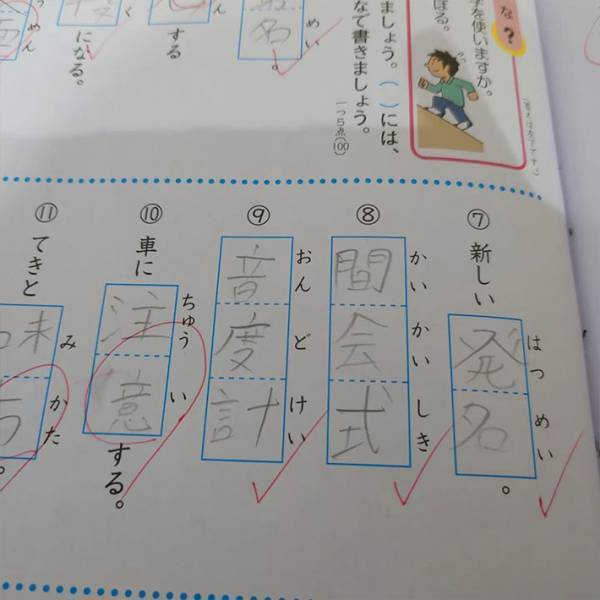 な?
を使いますか。
ぼる。
ましょう。( )には、
なで書きましょう。
一つ5点(100)
めい
名。
する
になる。
⑦ 新しい発名。
はつ めい
⑧ 間会式
かい かい しき
⑨ 音度計
おん ど けい
⑩ 車に注意する。
ちゅう い
⑪ てきと味方。
み かた